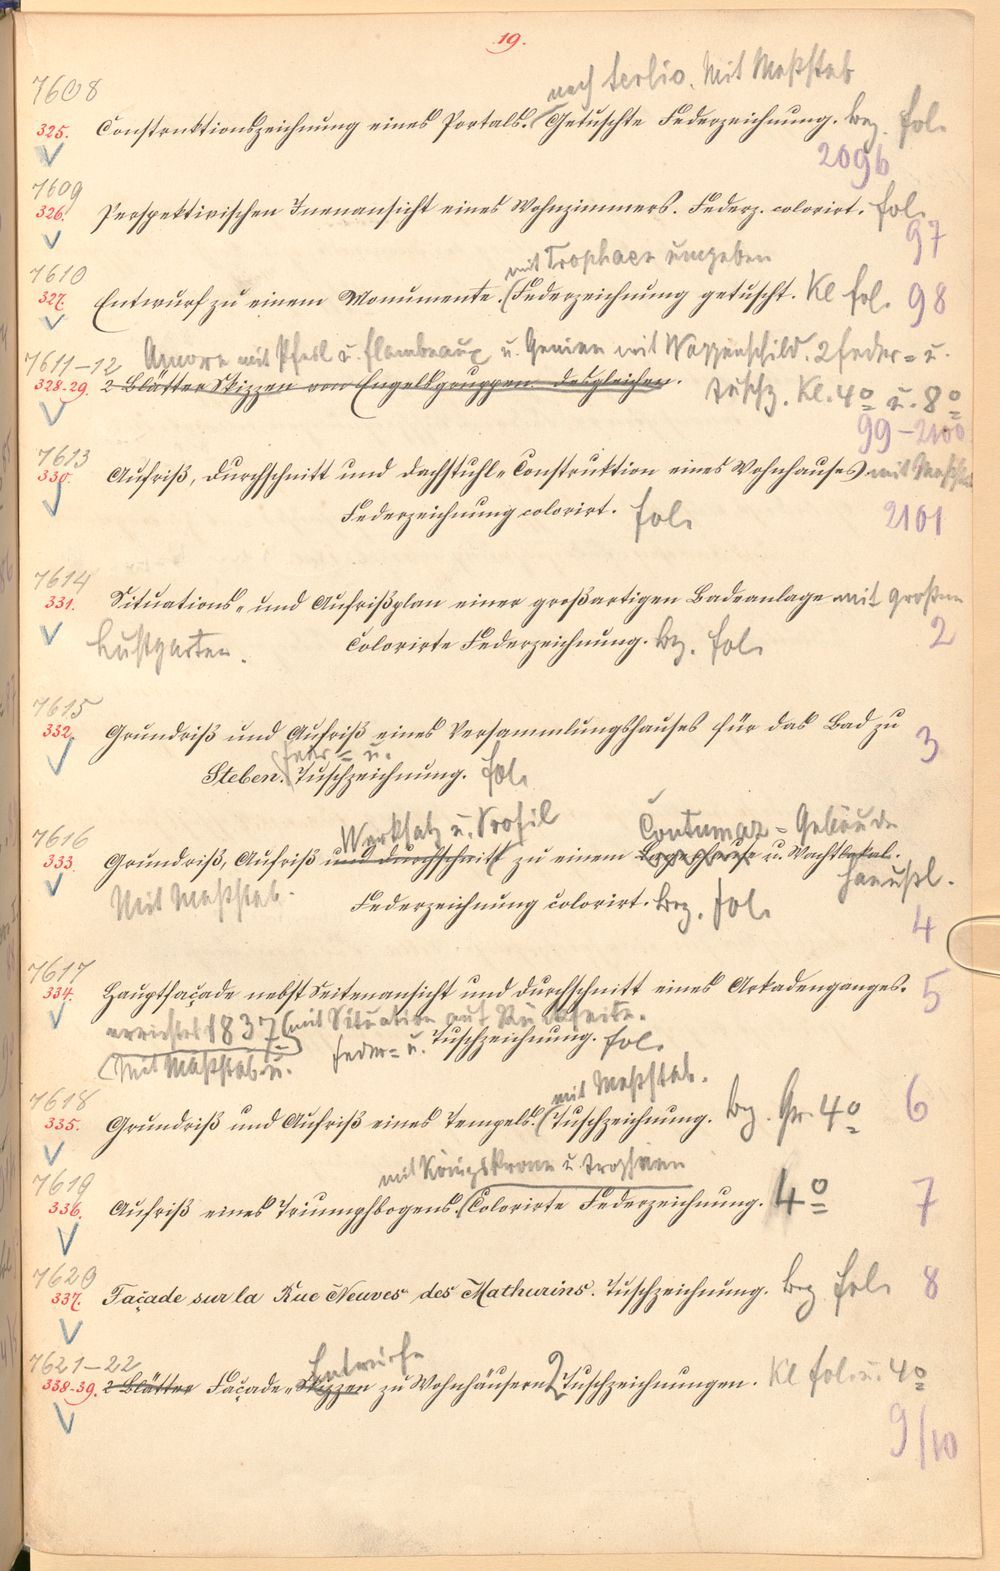 19.
7608 nach Serlio. Mit Maßstab
325. Construktionszeichnung eines Portals. (Getuschte Federzeichnung. bez. fol.
2096
7609
326. Perspektivischen Inenansicht eines Wohnzimmers. Federz. colorirt. fol.
97
7610 mit Trophaen umgeben
327. Entwurf zu einem Monumente. (Federzeichnung getuscht. Kl fol. 98
7611-12 Amore mit Pfeil u. flambeaux u. Genien mit Wappenschild. 2 Feder= u.
328-29. 2 Blätter Skizzen von Engelsgruppen desgleichen. Tuschz. Kl. 4o u. 8o
99-2100
7613
330. Aufriß, Durchschnitt und Dachstuhl-Construktion eines Wohnhauses mit Maßstab
Federzeichnung colorirt. fol. 2101
7614
331. Situations- und Aufrißplan einer großartigen Badeanlage mit großem
Lustgarten. Colorirte Federzeichnung. bz. fol. 2
7615
332. Grundriß und Aufriß eines Versammlungshauses für das Bad zu 3
Feder= u.
Steben. Tuschzeichnung. fol.
7616 Werksatz u. Profil Contumaz = Gebäude
333. Grundriß, Aufriß und Durchschnitt zu einem u. Wachtlokal.
Mit Maßstab. Federzeichnung colorirt. bez. fol. häusl.
4
7617
334. Hauptfaçade nebst Seitenansicht und Durchschnitt eines Arkadenganges. 5
errichtet 1837 (mit Situation auf Rückseite.
(Mit Maßstab u. Feder= u. Tuschzeichnung. fol.
7618 mit Maßstab.
335. Grundriß und Aufriß eines Tempels. (Tuschzeichnung. bz. Gr. 4o 6
7619 mit Königskrone u. Trophäen
336. Aufriß eines Triumphbogens. (Colorirte Federzeichnung. 4o 7
7620
337. Façade sur la Rue Neuves des Mathurins. Tuschzeichnung. bez fol. 8
7621-22 Entwürfe
338-39. 2 Blätter Façade-Skizzen zu Wohnhäusern 2 Tuschzeichnungen. Kl fol. u. 4o
9/10